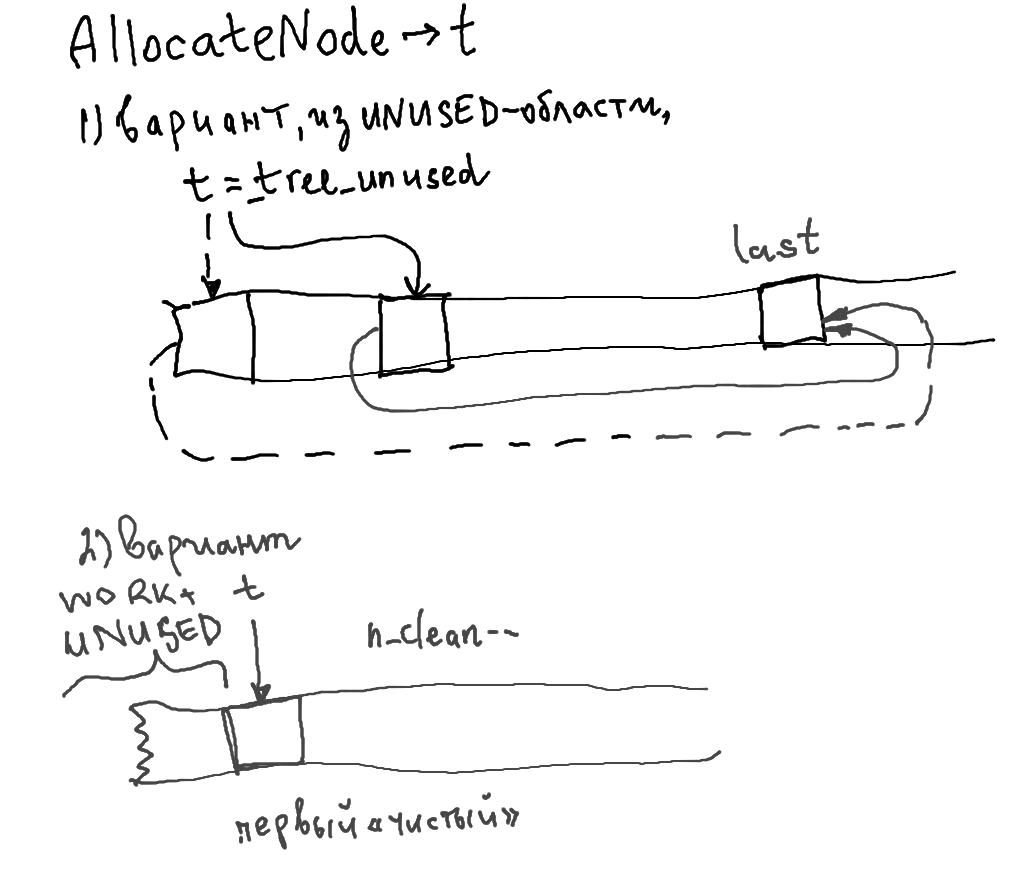 AllocateNode→t
1) вариант, из UNUSED-области,
t = _tree_unused
last
2) вариант
WORK+ t
UNUSED
n_clean--
первый «чистый»